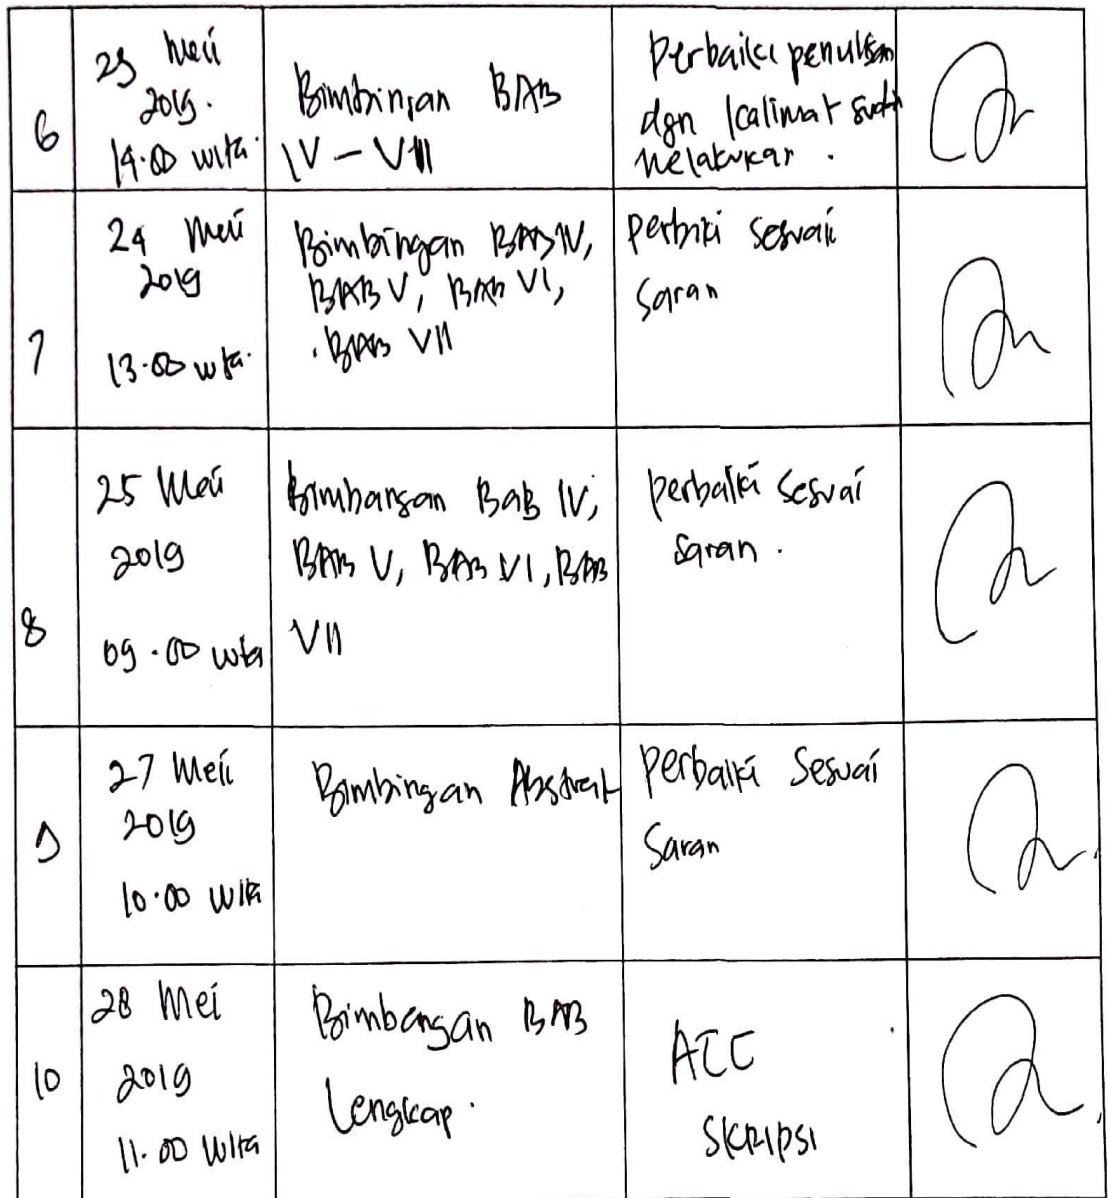 6
23 Mei
2019.
14.00 wita.
Bimbingan BAB
IV - VII
Perbaiki penulisan
dgn kalimat sudah
melakukan .
7
24 Mei
2019
13.00 wita.
Bimbingan BAB IV,
BAB V, BAB VI,
. BAB VII
perbiki sesuai
saran
8
25 Mei
2019
09.00 wita
Bimbangan Bab IV,
BAB V, BAB VI, BAB
VII
perbaiki sesuai
saran .
9
27 Mei
2019
10.00 wita
Bimbingan Abstrak
perbaiki sesuai
saran
10
28 Mei
2019
11.00 wita
Bimbangan BAB
lengkap .
ACC
SKRIPSI